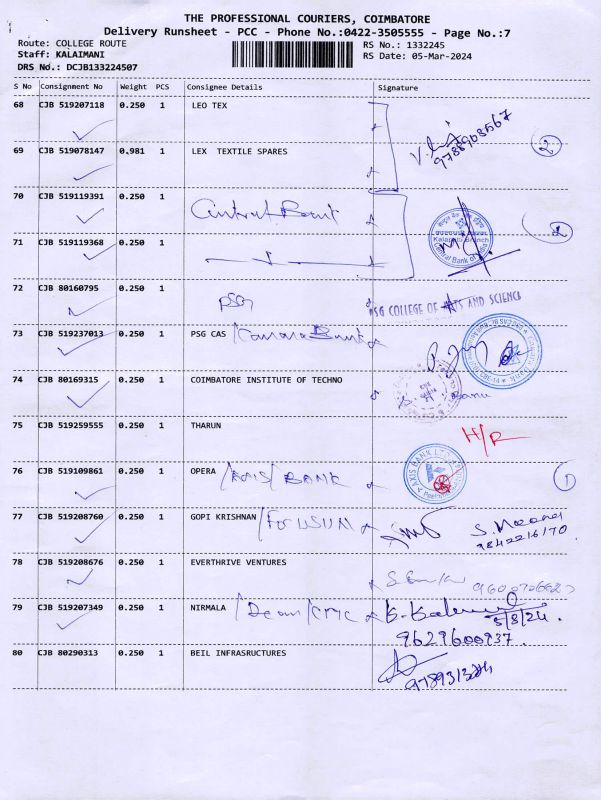 THE PROFESSIONAL COURIERS, COIMBATORE
Delivery Runsheet - PCC - Phone No.:0422-3505555 - Page No.:7
Route: COLLEGE ROUTE
RS No.: 1332245
Staff: KALAIMANI
RS Date: 05-Mar-2024
DRS No.: DCJB133224507
S No Consignment No Weight PCS Consignee Details Signature
68 CJB 519207118 0.250 1 LEO TEX
9788908567
2
69 CJB 519078147 0.981 1 LEX TEXTILE SPARES
70 CJB 519119391 0.250 1 Central Bank
2
71 CJB 519119368 0.250 1
Kalapatti Branch
Central Bank of India
72 CJB 80160795 0.250 1 PSG
PSG COLLEGE OF ARTS AND SCIENCE
73 CJB 519237013 0.250 1 PSG CAS / Canara Bank
74 CJB 80169315 0.250 1 COIMBATORE INSTITUTE OF TECHNO
75 CJB 519259555 0.250 1 THARUN
H/R
76 CJB 519109861 0.250 1 OPERA / AXIS / BANK
AXIS BANK LTD
1
77 CJB 519208760 0.250 1 GOPI KRISHNAN
9842216170
78 CJB 519208676 0.250 1 EVERTHRIVE VENTURES
79 CJB 519207349 0.250 1 NIRMALA / Dean / CMC
5/3/24.
9629600937.
80 CJB 80290313 0.250 1 BEIL INFRASRUCTURES